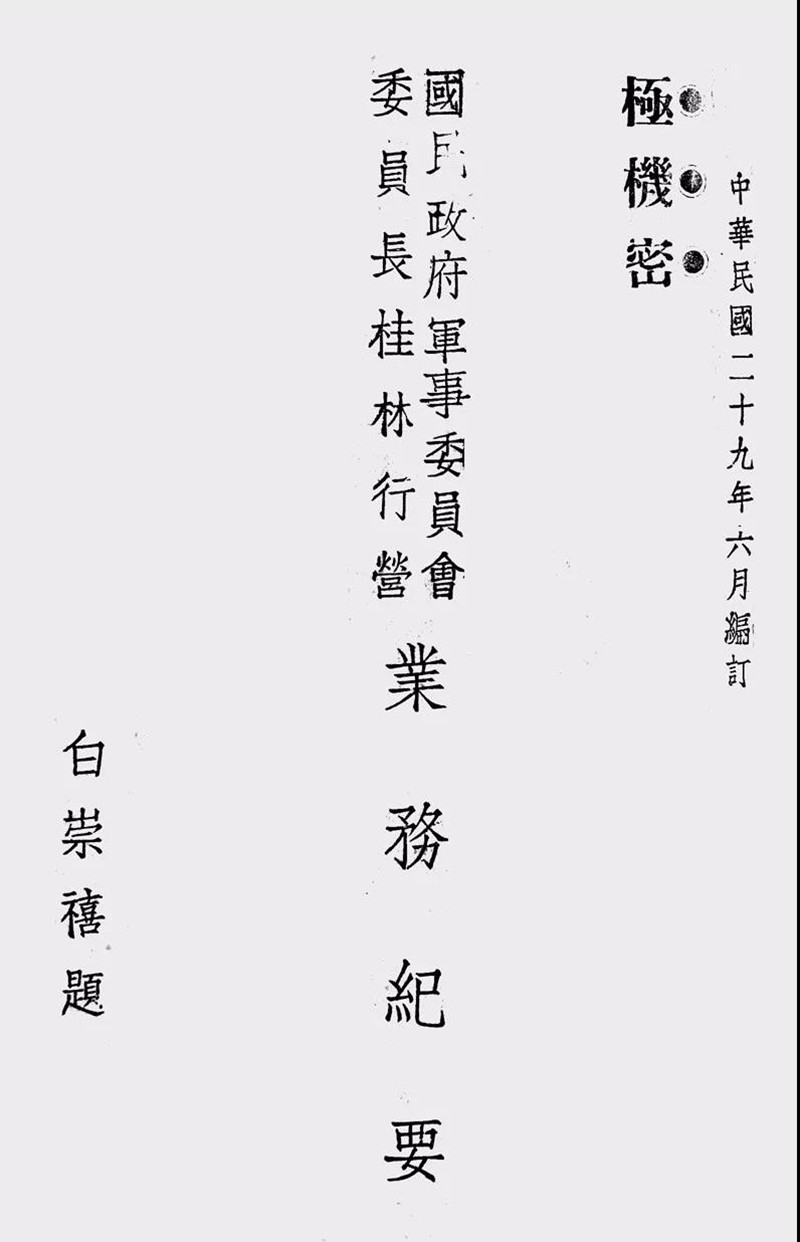 中華民國二十九年六月編訂
極機密
國民政府軍事委員會
委員長桂林行營
業務紀要
白崇禧題